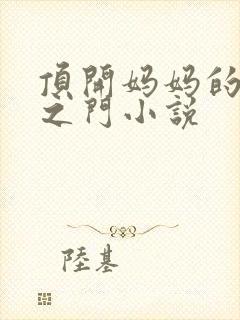 頂開妈妈的
之门小説
陸基